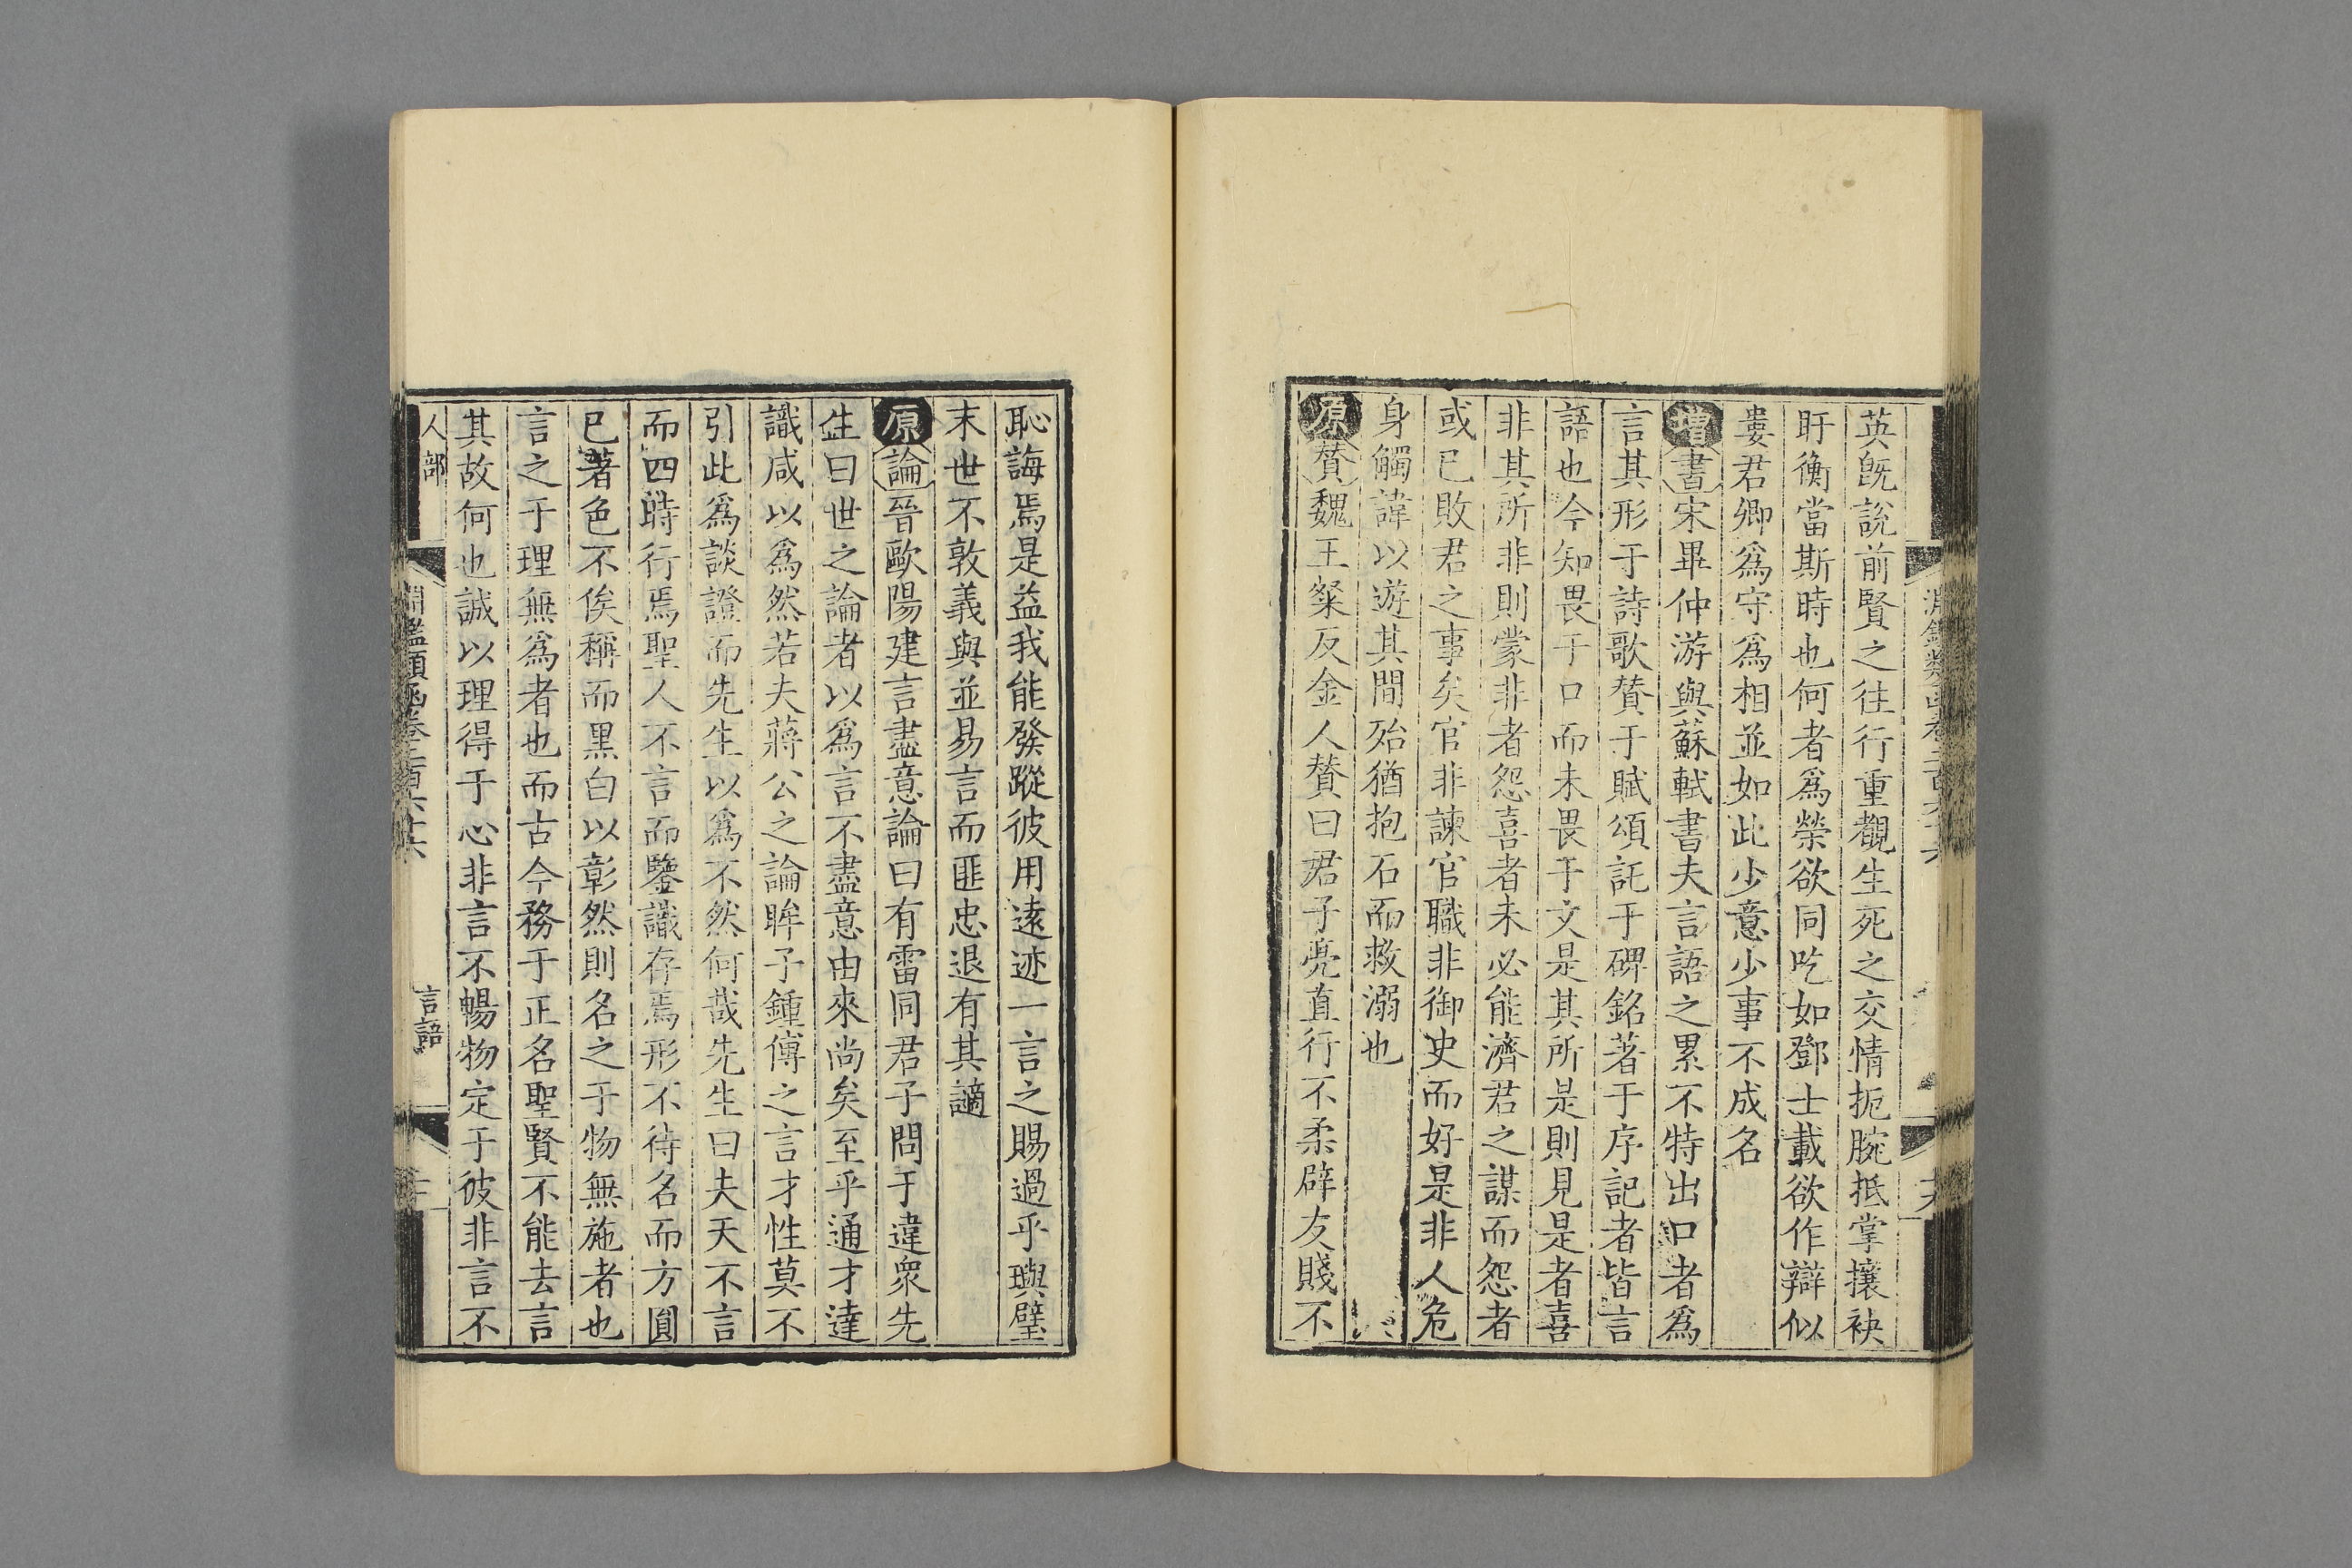 英旣說前賢之往行重覩生死之交情扼腕抵掌攘袂
盱衡當斯時也何者爲榮欲同吃如鄧士載欲作辯似
婁君卿爲守爲相並如此少意少事不成名
增書宋畢仲游與蘇軾書夫言語之累不特出口者爲
言其形于詩歌賛于賦頌託于碑銘著于序記者皆言
語也今知畏于口而未畏于文是其所是則見是者喜
非其所非則蒙非者怨喜者未必能濟君之謀而怨者
或已敗君之事矣官非諫官職非御史而好是非人危
身觸諱以遊其間殆猶抱石而救溺也
原賛魏王粲反金人賛曰君子亮直行不柔辟友賤不
恥誨焉是益我能發蹤彼用遠迹一言之賜過乎璵璧
末世不敦義與並易言而匪忠退有其讁
原論晉歐陽建言盡意論曰有雷同君子問于違衆先
生曰世之論者以爲言不盡意由來尚矣至乎通才達
識咸以爲然若夫蔣公之論眸子鍾傅之言才性莫不
引此爲談證而先生以爲不然何哉先生曰夫天不言
而四時行焉聖人不言而鑒識存焉形不待名而方圓
已著色不俟稱而黑白以彰然則名之于物無施者也
言之于理無爲者也而古今務于正名聖賢不能去言
其故何也誠以理得于心非言不暢物定于彼非言不
人部
淵鑑類函卷二百六十六
言語